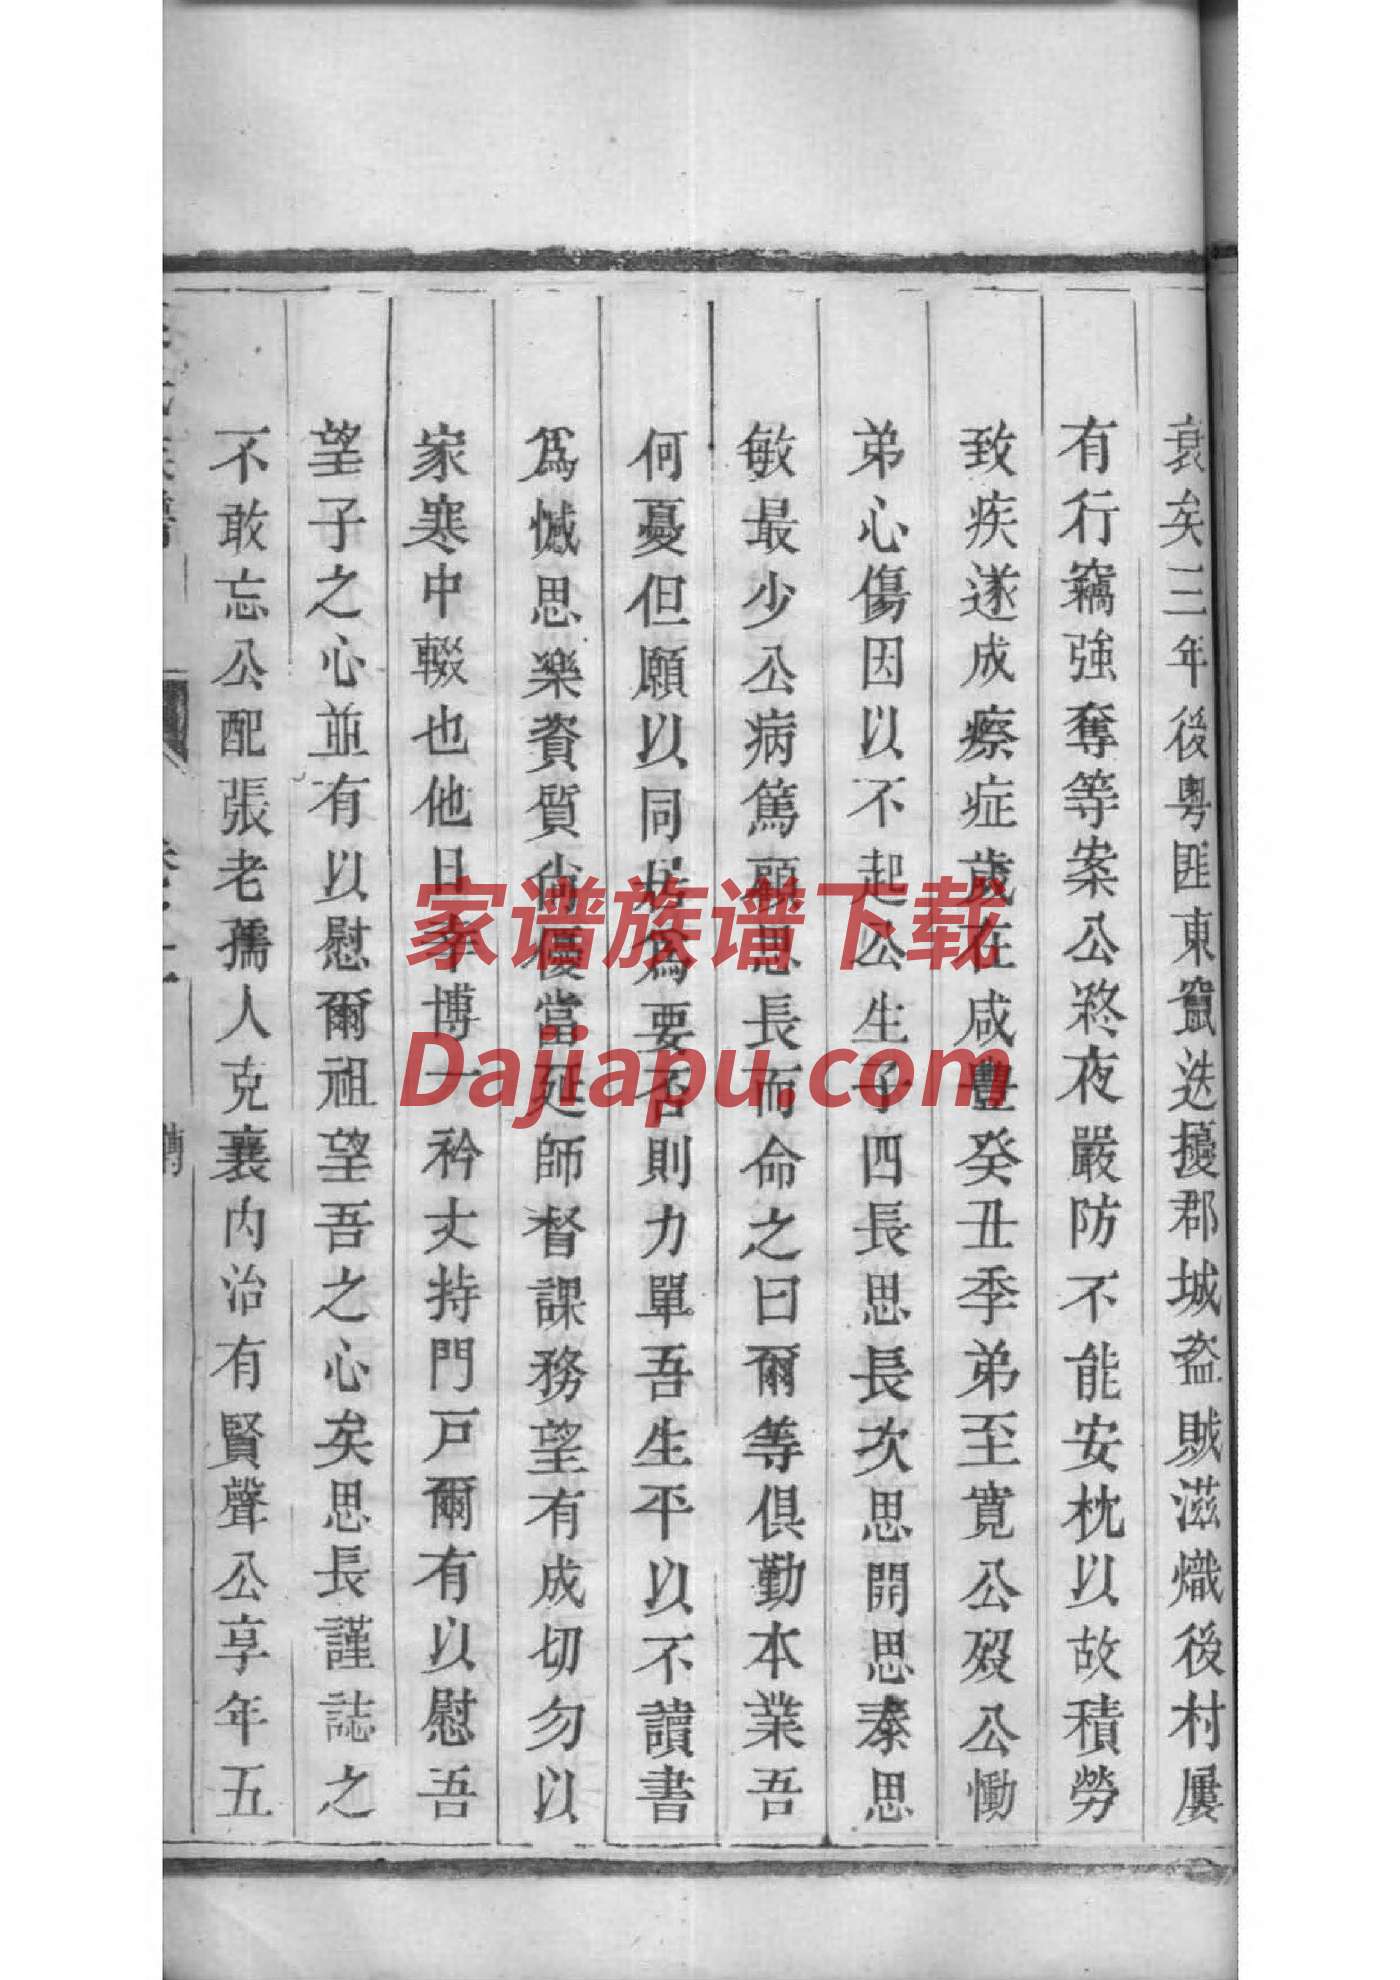 衰矣三年後粵匪東竄迭擾郡城盗賊滋熾後村屢
有行竊強奪等案公終夜嚴防不能安枕以故積勞
致疾遂成瘵症歲在咸豐癸丑季弟至寛公歿公慟
弟心傷因以不起公生子四長思長次思開思泰思
敏最少公病篤顧思長而命之曰爾等俱勤本業吾
何憂但願以同居為要否則力單吾生平以不讀書
爲憾思樂資質尚優當延師督課務望有成切勿以
家寒中輟也他日幸博一衿丈持門戸爾有以慰吾
望子之心並有以慰爾祖望吾之心矣思長謹誌之
不敢忘公配張老孺人克襄内治有賢聲公享年五
家谱族谱下载
Dajiapu.com